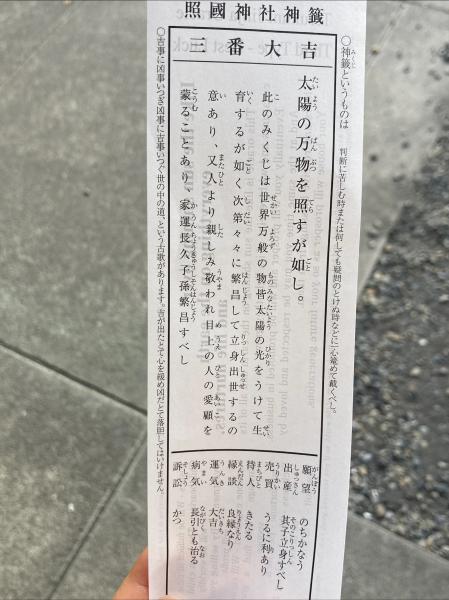 照國神社神籤
三番大吉
○神籤というものは 判断に苦しむ時または何しても疑問のとけぬ時などに一心籠めて戴くべし。
太陽の万物を照すが如し。
此のみくじは世界万般の物皆太陽の光をうけて生
育するが如く次第々々に繁昌して立身出世するの
意あり、又人より親しみ敬われ目上の人の愛顧を
蒙ることあり、家運長久子孫繁昌すべし
願望 のちかなう
出産 其子立身すべし
売買 うるに利あり
待人 きたる
縁談 良縁なり
運気 大吉
病気 長引とも治る
訴訟 かつ
○吉事に凶事いつぎ凶事に吉事いつぐ世の中の道、という古歌があります。吉が出たとて心を緩め凶だとて落胆してはいけません。